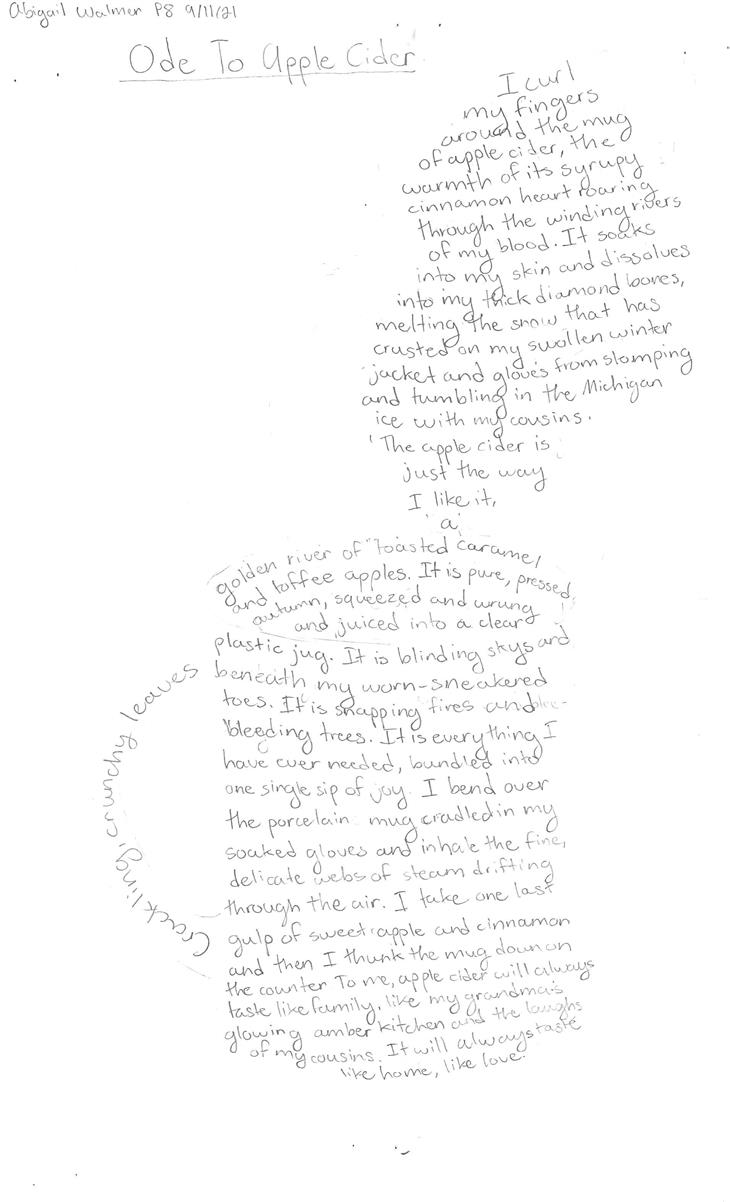 Abigail Walmer P8 9/11/21
Ode To Apple Cider
I curl
my fingers
around the mug
of apple cider, the
warmth of its syrupy
cinnamon heart roaring
through the winding rivers
of my blood. It soaks
into my skin and dissolves
into my thick diamond bones,
melting the snow that has
crusted on my swollen winter
jacket and gloves from stomping
and tumbling in the Michigan
ice with my cousins.
The apple cider is
just the way
I like it,
a
golden river of toasted caramel
and toffee apples. It is pure, pressed
autumn, squeezed and wrung
and juiced into a clear
plastic jug. It is blinding skys and
Crackling, crunchy leaves
beneath my worn-sneakered
toes. It is snapping fires and
bleeding trees. It is everything I
have ever needed, bundled into
one single sip of joy. I bend over
the porcelain mug cradled in my
soaked gloves and inhale the fine,
delicate webs of steam drifting
through the air. I take one last
gulp of sweet apple and cinnamon
and then I thunk the mug down on
the counter To me, apple cider will always
taste like family, like my grandma's
glowing amber kitchen and the laughs
of my cousins. It will always taste
like home, like love.